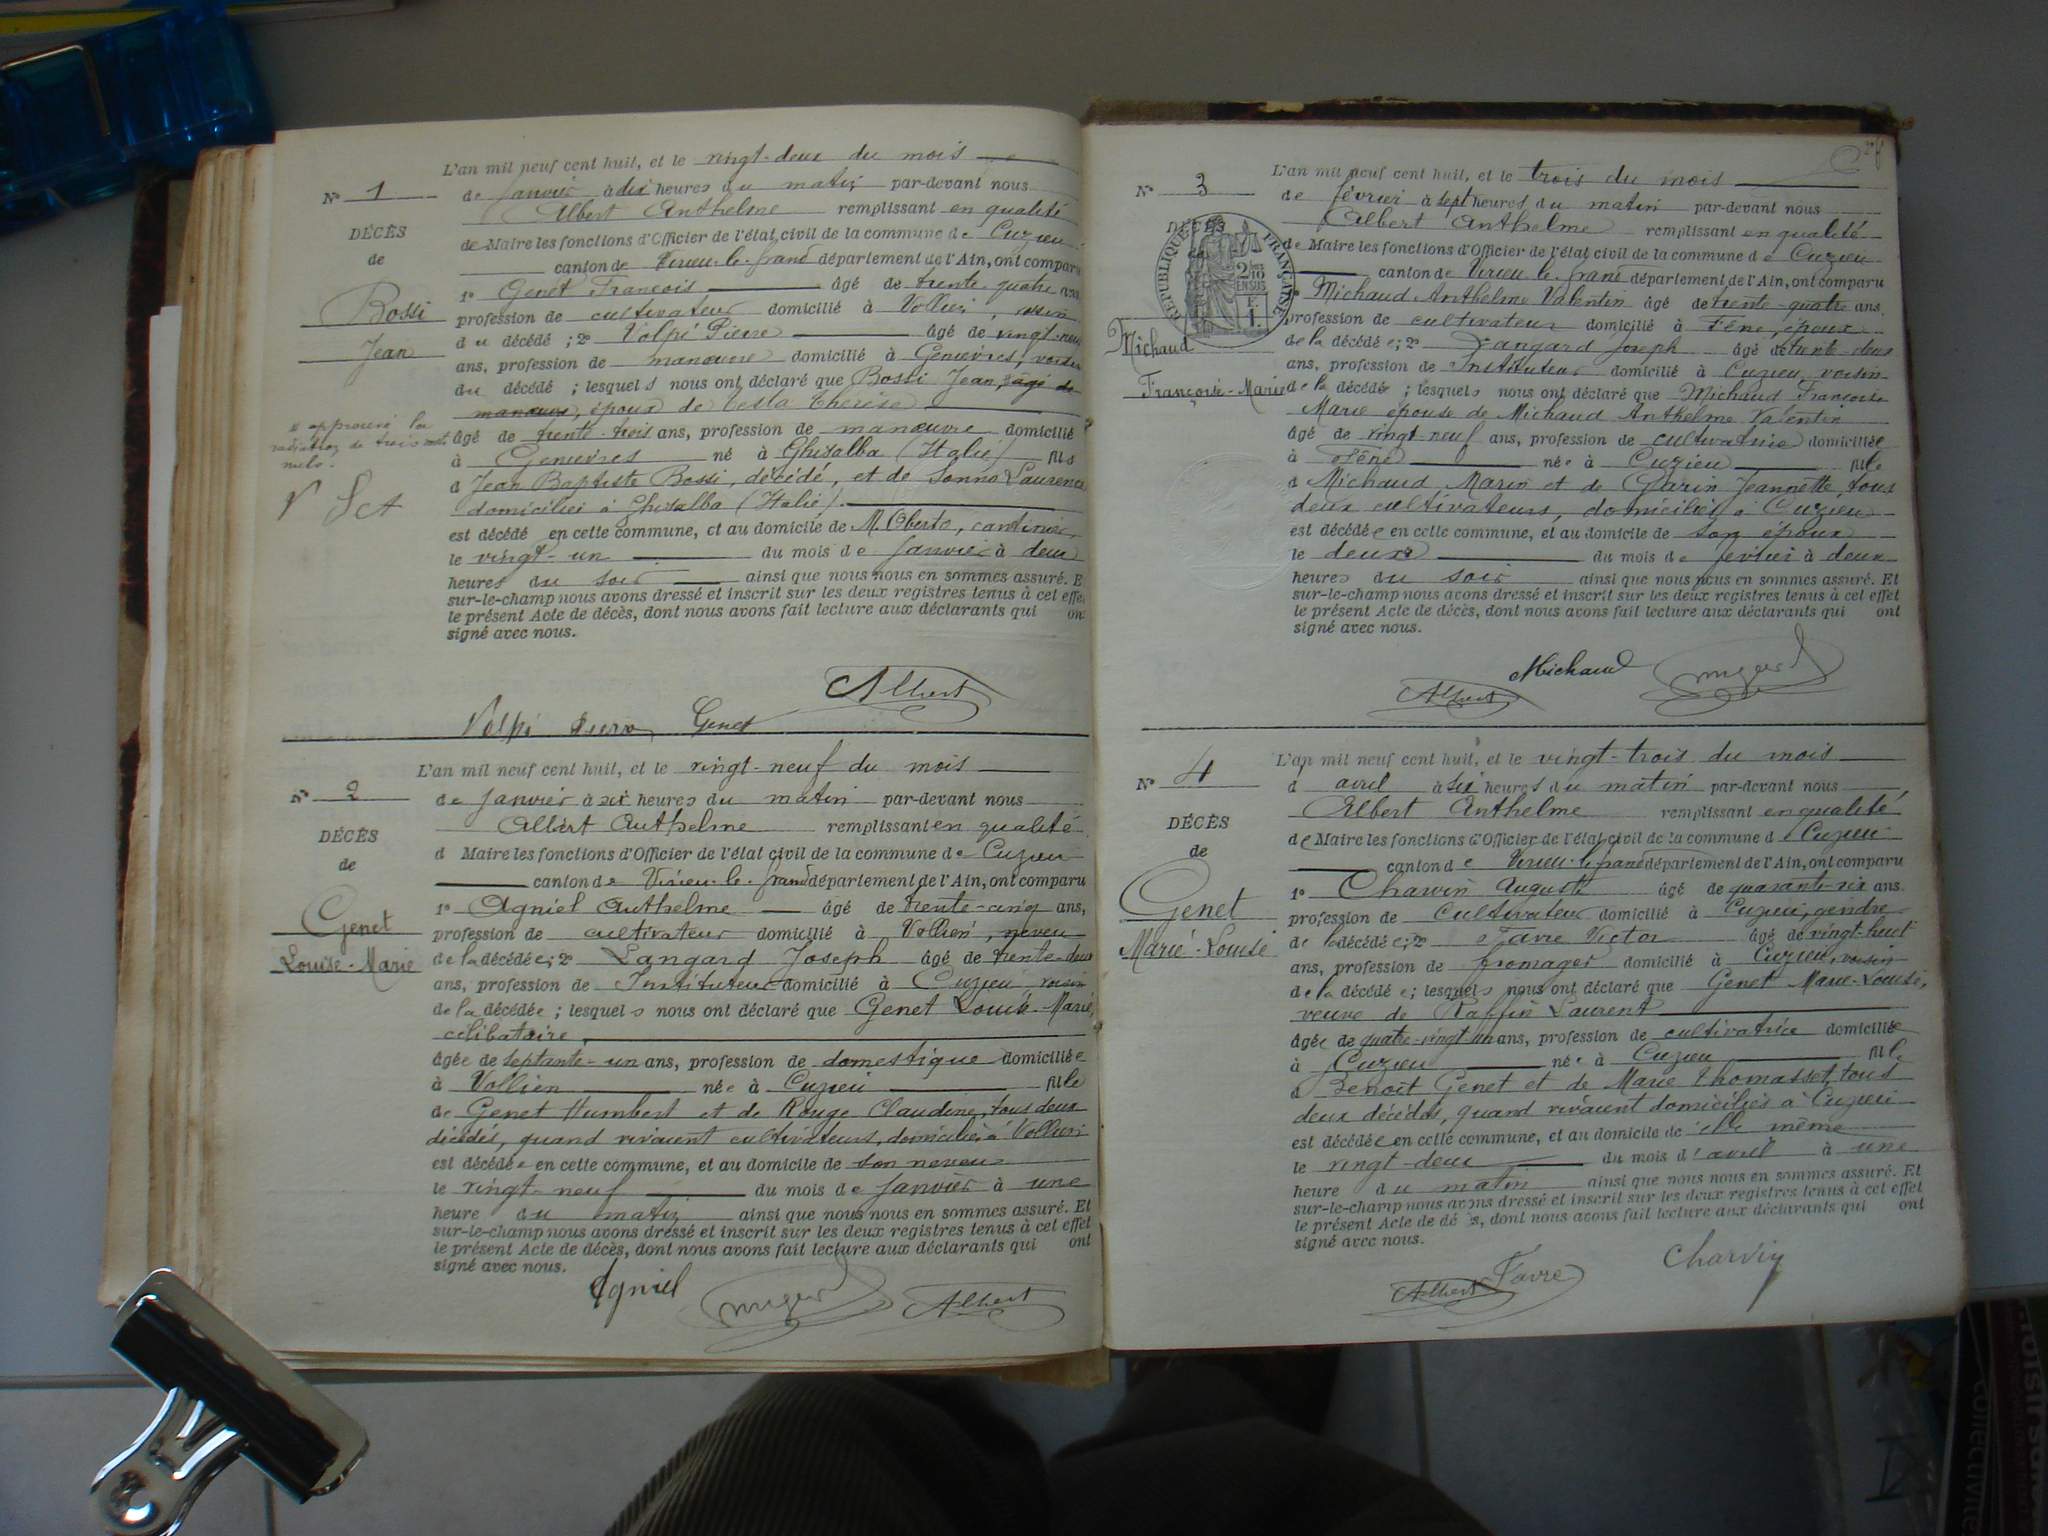 L'an mil neuf cent huit, et le vingt-deux du mois
N° 1 de janvier à dix heures du matin par-devant nous
Albert Anthelme remplissant en qualité
DÉCÈS de Maire les fonctions d'Officier de l'état civil de la commune de Cuzieu
de canton de Virieu-le-grand département de l'Ain, ont comparu
1° Genet François âgé de trente-quatre ans
Bossi profession de cultivateur domicilié à Vollien, voisin
du décédé ; 2° Volpé Pierre âgé de vingt-neuf
Jean ans, profession de manœuvre domicilié à Genevres, voisin
du décédé ; lesquels nous ont déclaré que Bossi Jean, âgé de
manœuvre, époux de Testa Thérèse
approuvé la
radiation de trois mots
nuls.
âgé de trente-trois ans, profession de manœuvre domicilié
à Genevres né à Ghisalba (Italie) fils
d Jean Baptiste Bossi, décédé, et de Sonno Laurence
domiciliés à Ghisalba (Italie).
est décédé en cette commune, et au domicile de M. Oberto, cantinier,
le vingt-un du mois de janvier à deux
heures du soir ainsi que nous nous en sommes assuré. E
sur-le-champ nous avons dressé et inscrit sur les deux registres tenus à cet effe
le présent Acte de décès, dont nous avons fait lecture aux déclarants qui on
signé avec nous.
Albert
Volpi Genet
L'an mil neuf cent huit, et le vingt-neuf du mois
N° 2 de janvier à six heures du matin par-devant nous
Albert Anthelme remplissant en qualité
DÉCÈS d Maire les fonctions d'Officier de l'état civil de la commune de Cuzieu
de canton de Virieu-le-grand département de l'Ain, ont comparu
1° Agniel Anthelme âgé de trente-cinq ans,
Genet profession de cultivateur domicilié à Vollien, neveu
Louise-Marie de la décédée ; 2° Langard Joseph âgé de trente-deux
ans, profession de Instituteur domicilié à Cuzieu, voisin
de la décédée ; lesquels nous ont déclaré que Genet Louise-Marie,
célibataire,
âgée de septante-un ans, profession de domestique domiciliée
à Vollien née à Cuzieu fille
de Genet Humbert et de Rouge Claudine, tous deux
décédés, quand vivaient cultivateurs, domiciliés à Vollien
est décédée en cette commune, et au domicile de son neveu
le vingt-neuf du mois de janvier à une
heure du matin ainsi que nous nous en sommes assuré. Et
sur-le-champ nous avons dressé et inscrit sur les deux registres tenus à cet effet
le présent Acte de décès, dont nous avons fait lecture aux déclarants qui ont
signé avec nous.
Agniel Albert
L'an mil neuf cent huit, et le trois du mois
N° 3 de février à sept heures du matin par-devant nous
Albert Anthelme remplissant en qualité
DÉCÈS de Maire les fonctions d'Officier de l'état civil de la commune de Cuzieu
canton de Virieu-le-grand département de l'Ain, ont comparu
RÉPUBLIQUE FRANÇAISE
Michaud Anthelme Valentin âgé de trente-quatre ans,
profession de cultivateur domicilié à Fêne, époux
Michaud de la décédée ; 2° Langard Joseph âgé de trente-deux
ans, profession de Instituteur domicilié à Cuzieu, voisin
Françoise-Marie de la décédée ; lesquels nous ont déclaré que Michaud Françoise
Marie épouse de Michaud Anthelme Valentin
âgée de vingt-neuf ans, profession de cultivatrice domiciliée
à Fêne née à Cuzieu fille
d Michaud Marin et de Garin Jeannette, tous
deux cultivateurs, domiciliés à Cuzieu
est décédée en cette commune, et au domicile de son époux
le deux du mois de février à deux
heures du soir ainsi que nous nous en sommes assuré. Et
sur-le-champ nous avons dressé et inscrit sur les deux registres tenus à cet effet
le présent Acte de décès, dont nous avons fait lecture aux déclarants qui ont
signé avec nous.
Michaud
Albert
L'an mil neuf cent huit, et le vingt-trois du mois
N° 4 d' avril à six heures du matin par-devant nous
Albert Anthelme remplissant en qualité
DÉCÈS de Maire les fonctions d'Officier de l'état civil de la commune de Cuzieu
de canton de Virieu-le-grand département de l'Ain, ont comparu
1° Charvin Auguste âgé de quarante-six ans.
Genet profession de cultivateur domicilié à Cuzieu, gendre
Marie-Louise de la décédée ; 2° Favre Victor âgé de vingt-huit
ans, profession de fromager domicilié à Cuzieu, voisin
de la décédée ; lesquels nous ont déclaré que Genet Marie-Louise,
veuve de Raffin Laurent
âgée de quatre-vingt-un ans, profession de cultivatrice domiciliée
à Cuzieu née à Cuzieu fille
d Benoit Genet et de Marie Thomasset, tous
deux décédés, quand vivaient domiciliés à Cuzieu
est décédée en cette commune, et au domicile de elle même
le vingt-deux du mois d'avril à une
heure du matin ainsi que nous nous en sommes assuré. Et
sur-le-champ nous avons dressé et inscrit sur les deux registres tenus à cet effet
le présent Acte de dé s, dont nous avons fait lecture aux déclarants qui ont
signé avec nous.
Albert Favre Charvin